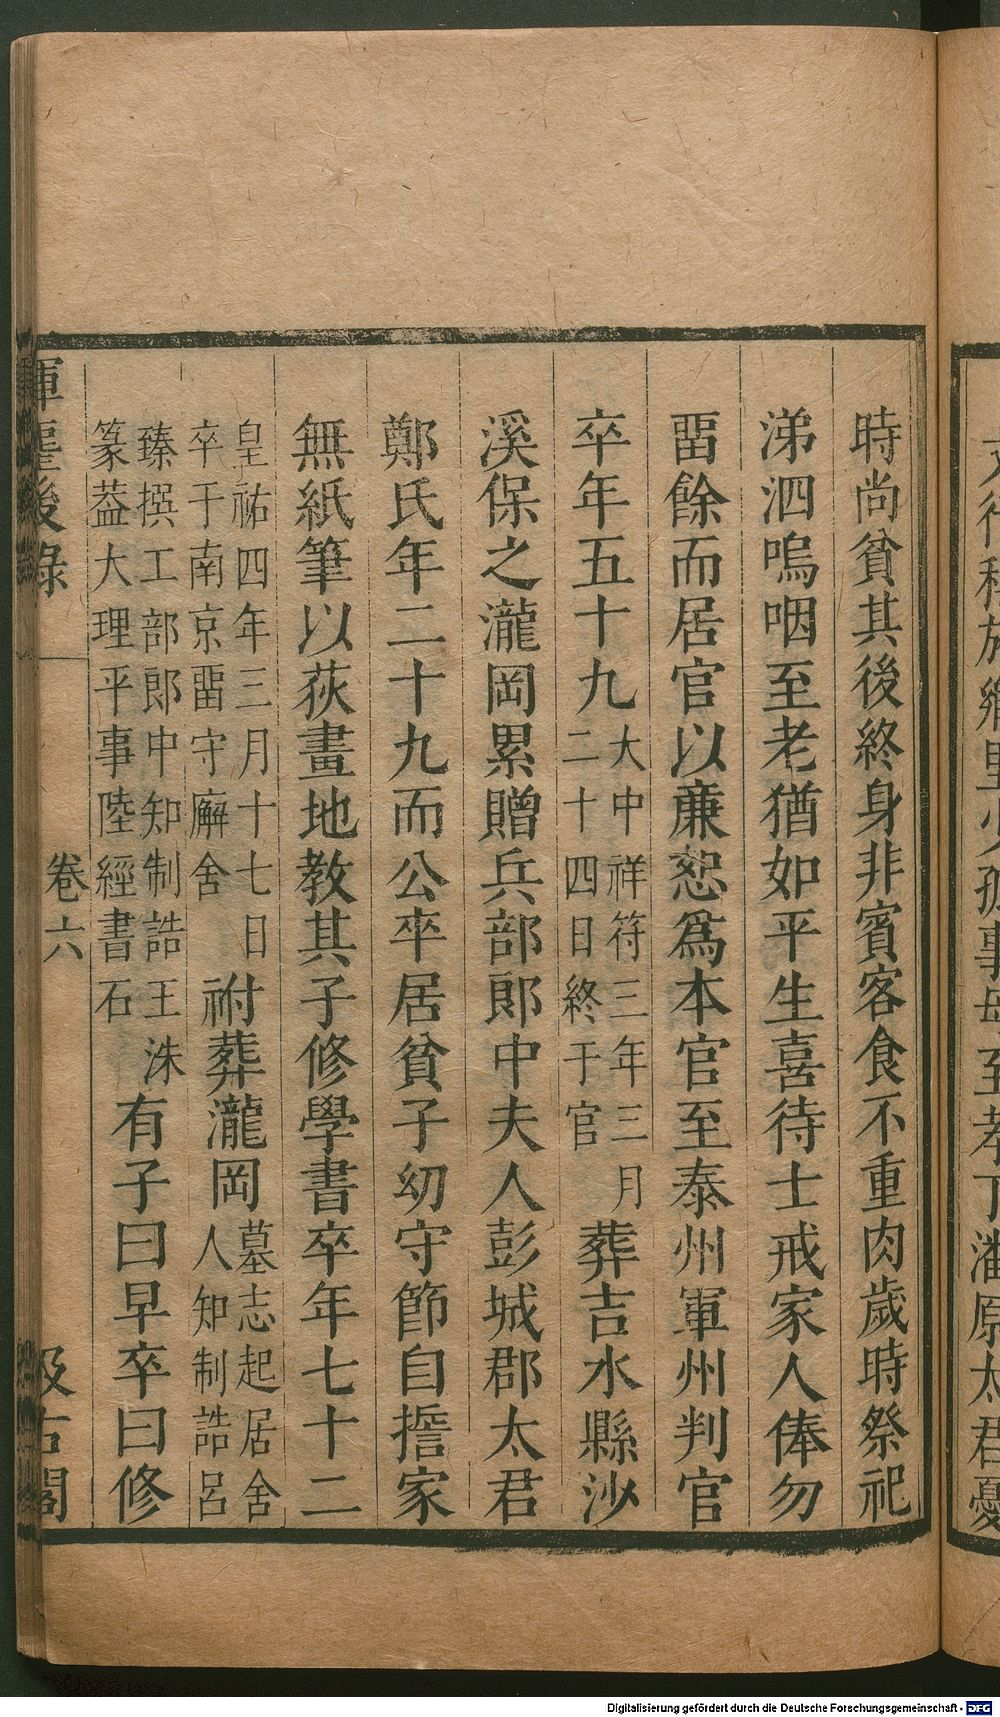 時尚貧其後終身非賓客食不重肉歲時祭祀
涕泗嗚咽至老猶如平生喜待士戒家人俸勿
畱餘而居官以廉恕爲本官至泰州軍州判官
卒年五十九大中祥符三年三月二十四日終于官葬吉水縣沙
溪保之瀧岡累贈兵部郎中夫人彭城郡太君
鄭氏年二十九而公卒居貧子幼守節自誓家
無紙筆以荻畫地教其子修學書卒年七十二
皇祐四年三月十七日卒于南京畱守廨舍祔葬瀧岡墓志起居舍人知制誥呂
臻撰工部郎中知制誥王洙篆葢大理平事陸經書石有子曰早卒曰修
揮麈後錄 卷六 汲古閣
Digitalisierung gefördert durch die Deutsche Forschungsgemeinschaft - DFG